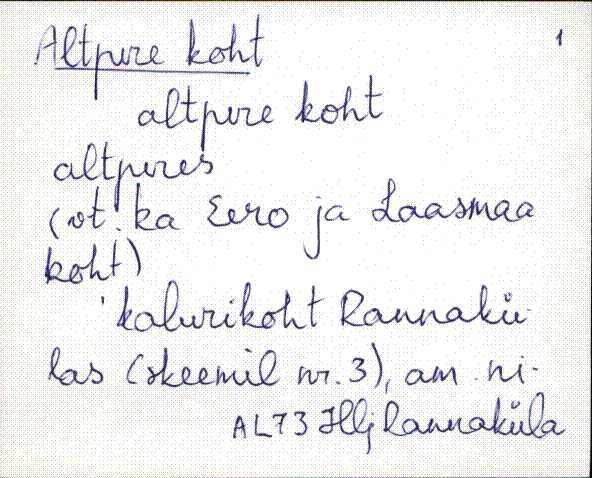 Altpere koht 1
altpere koht
altperes
(vt. ka Eero ja Laasmaa
koht)
'kalurikoht Rannakü-
las (skeemil nr. 3), am. ni-
AL73 Hlj Rannaküla